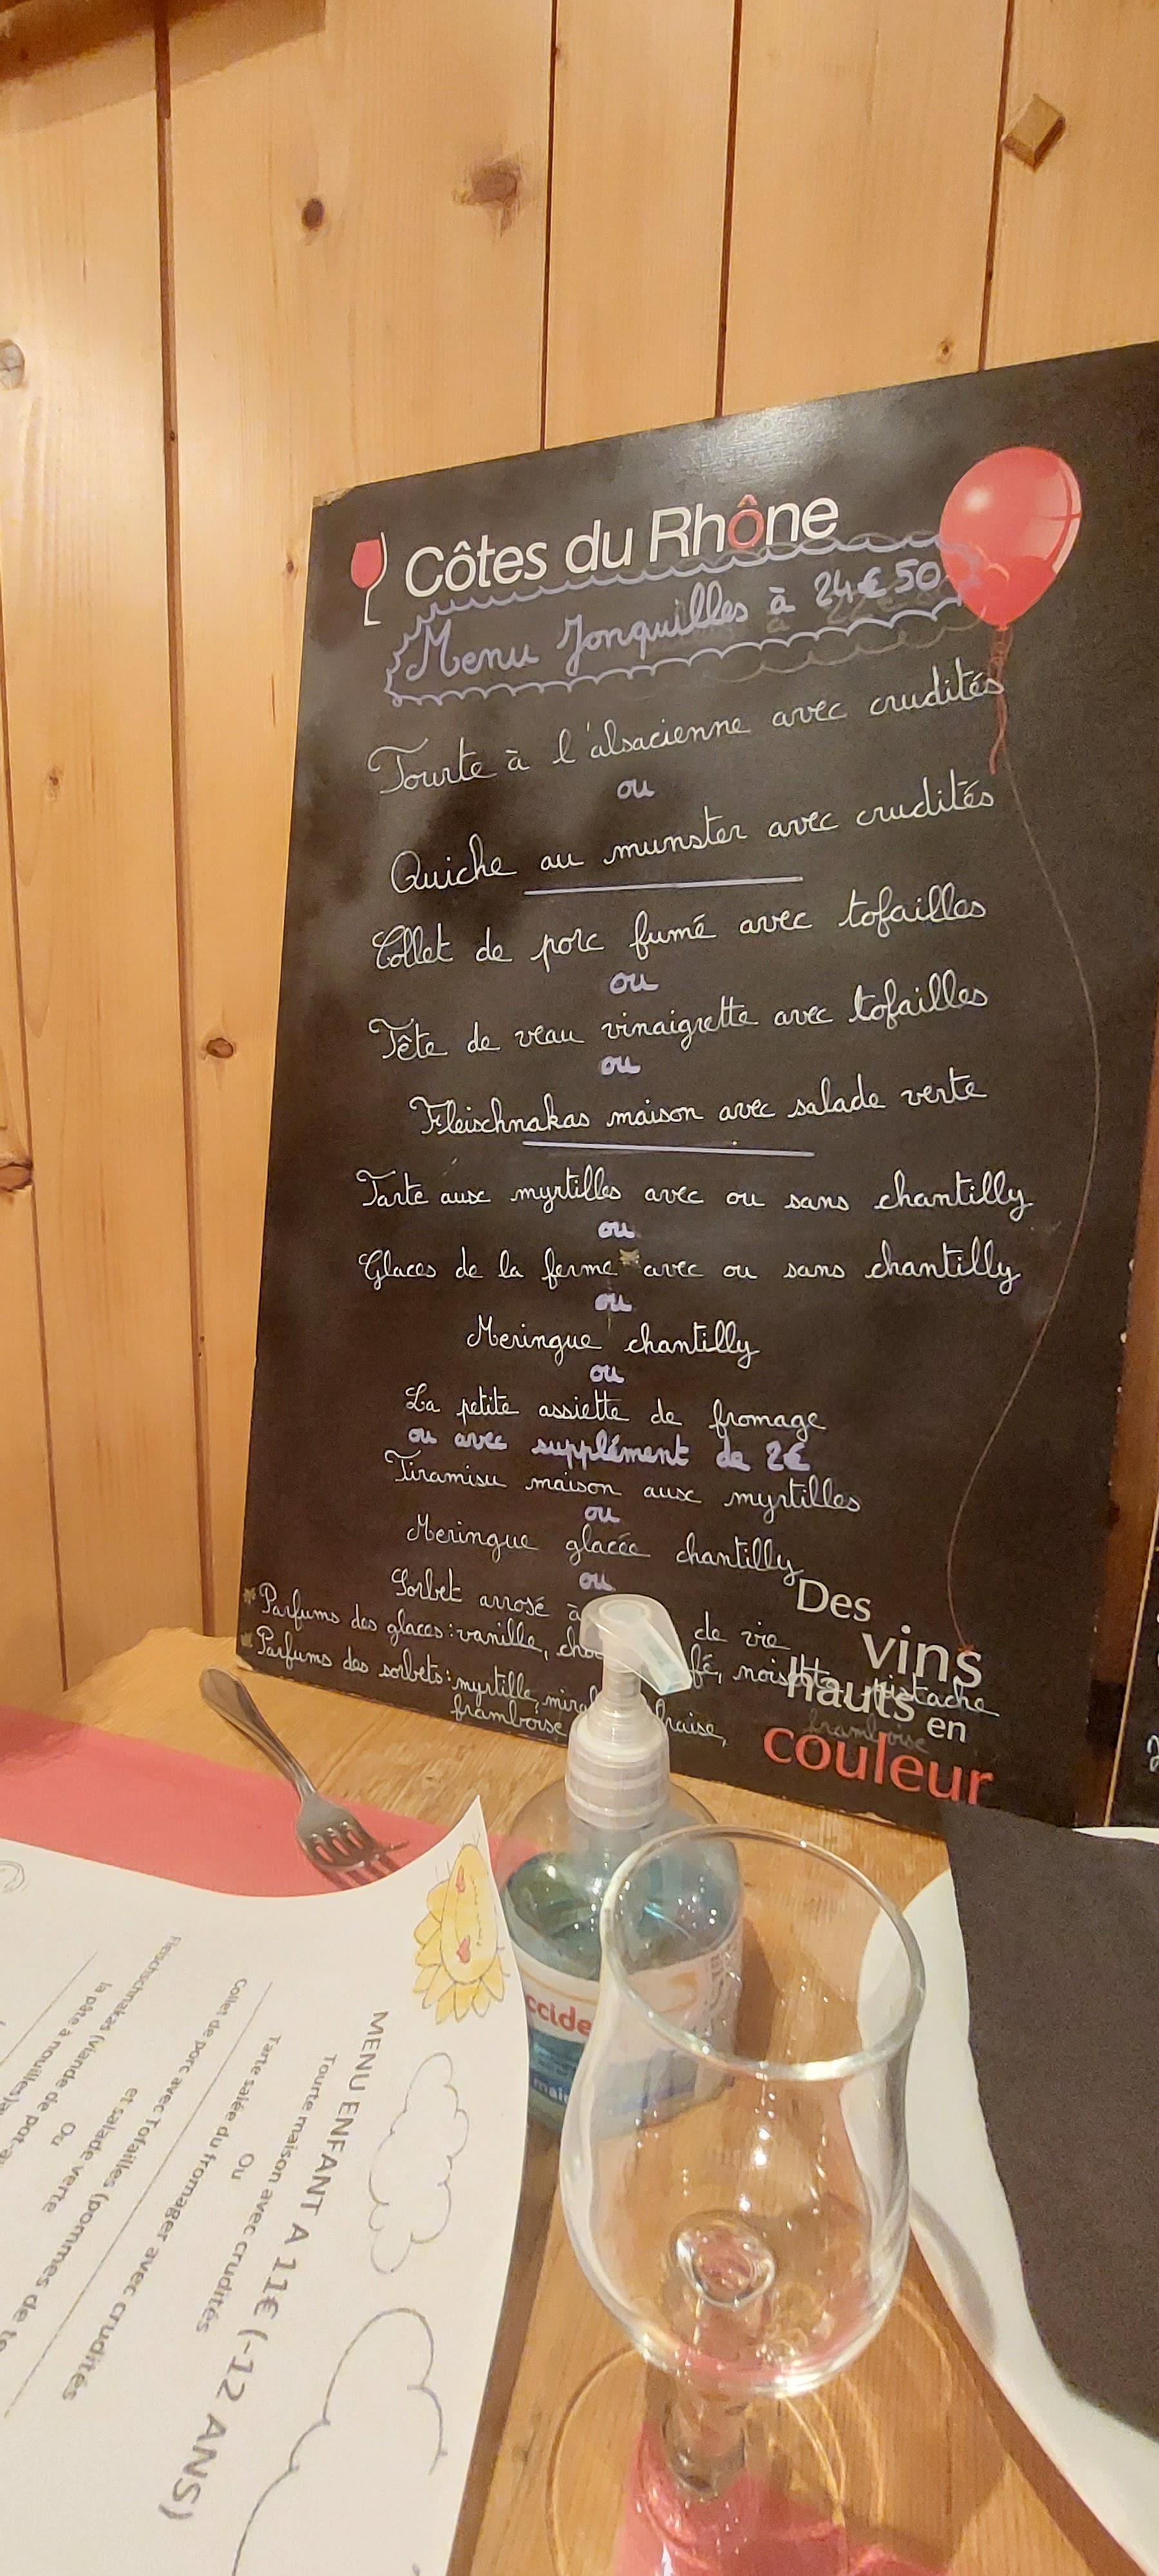 Côtes du Rhône
Menu Jonquilles à 24€50
Tourte à l'alsacienne avec crudités
ou
Quiche au munster avec crudités
Collet de porc fumé avec tofailles
ou
Tête de veau vinaigrette avec tofailles
ou
Fleischnakas maison avec salade verte
Tarte aux myrtilles avec ou sans chantilly
ou
Glaces de la ferme avec ou sans chantilly
ou
Meringue chantilly
ou
La petite assiette de fromage
ou avec supplément de 2€
Tiramisu maison aux myrtilles
ou
Meringue glacée chantilly
ou
Sorbet arrosé à de vie
Parfums des glaces: vanille, noisette, pistache
Parfums des sorbets: myrtille, fraise,
framboise
framboise
Des
vins
hauts en
couleur
MENU ENFANT A 11€ (-12 ANS)
Tourte maison avec crudités
Ou
Tarte salée du fromager avec crudités
Collet de porc avec Tofailles (pommes de
et salade verte
Ou
Fleischschnakas (viande de
la pâte à nouilles)